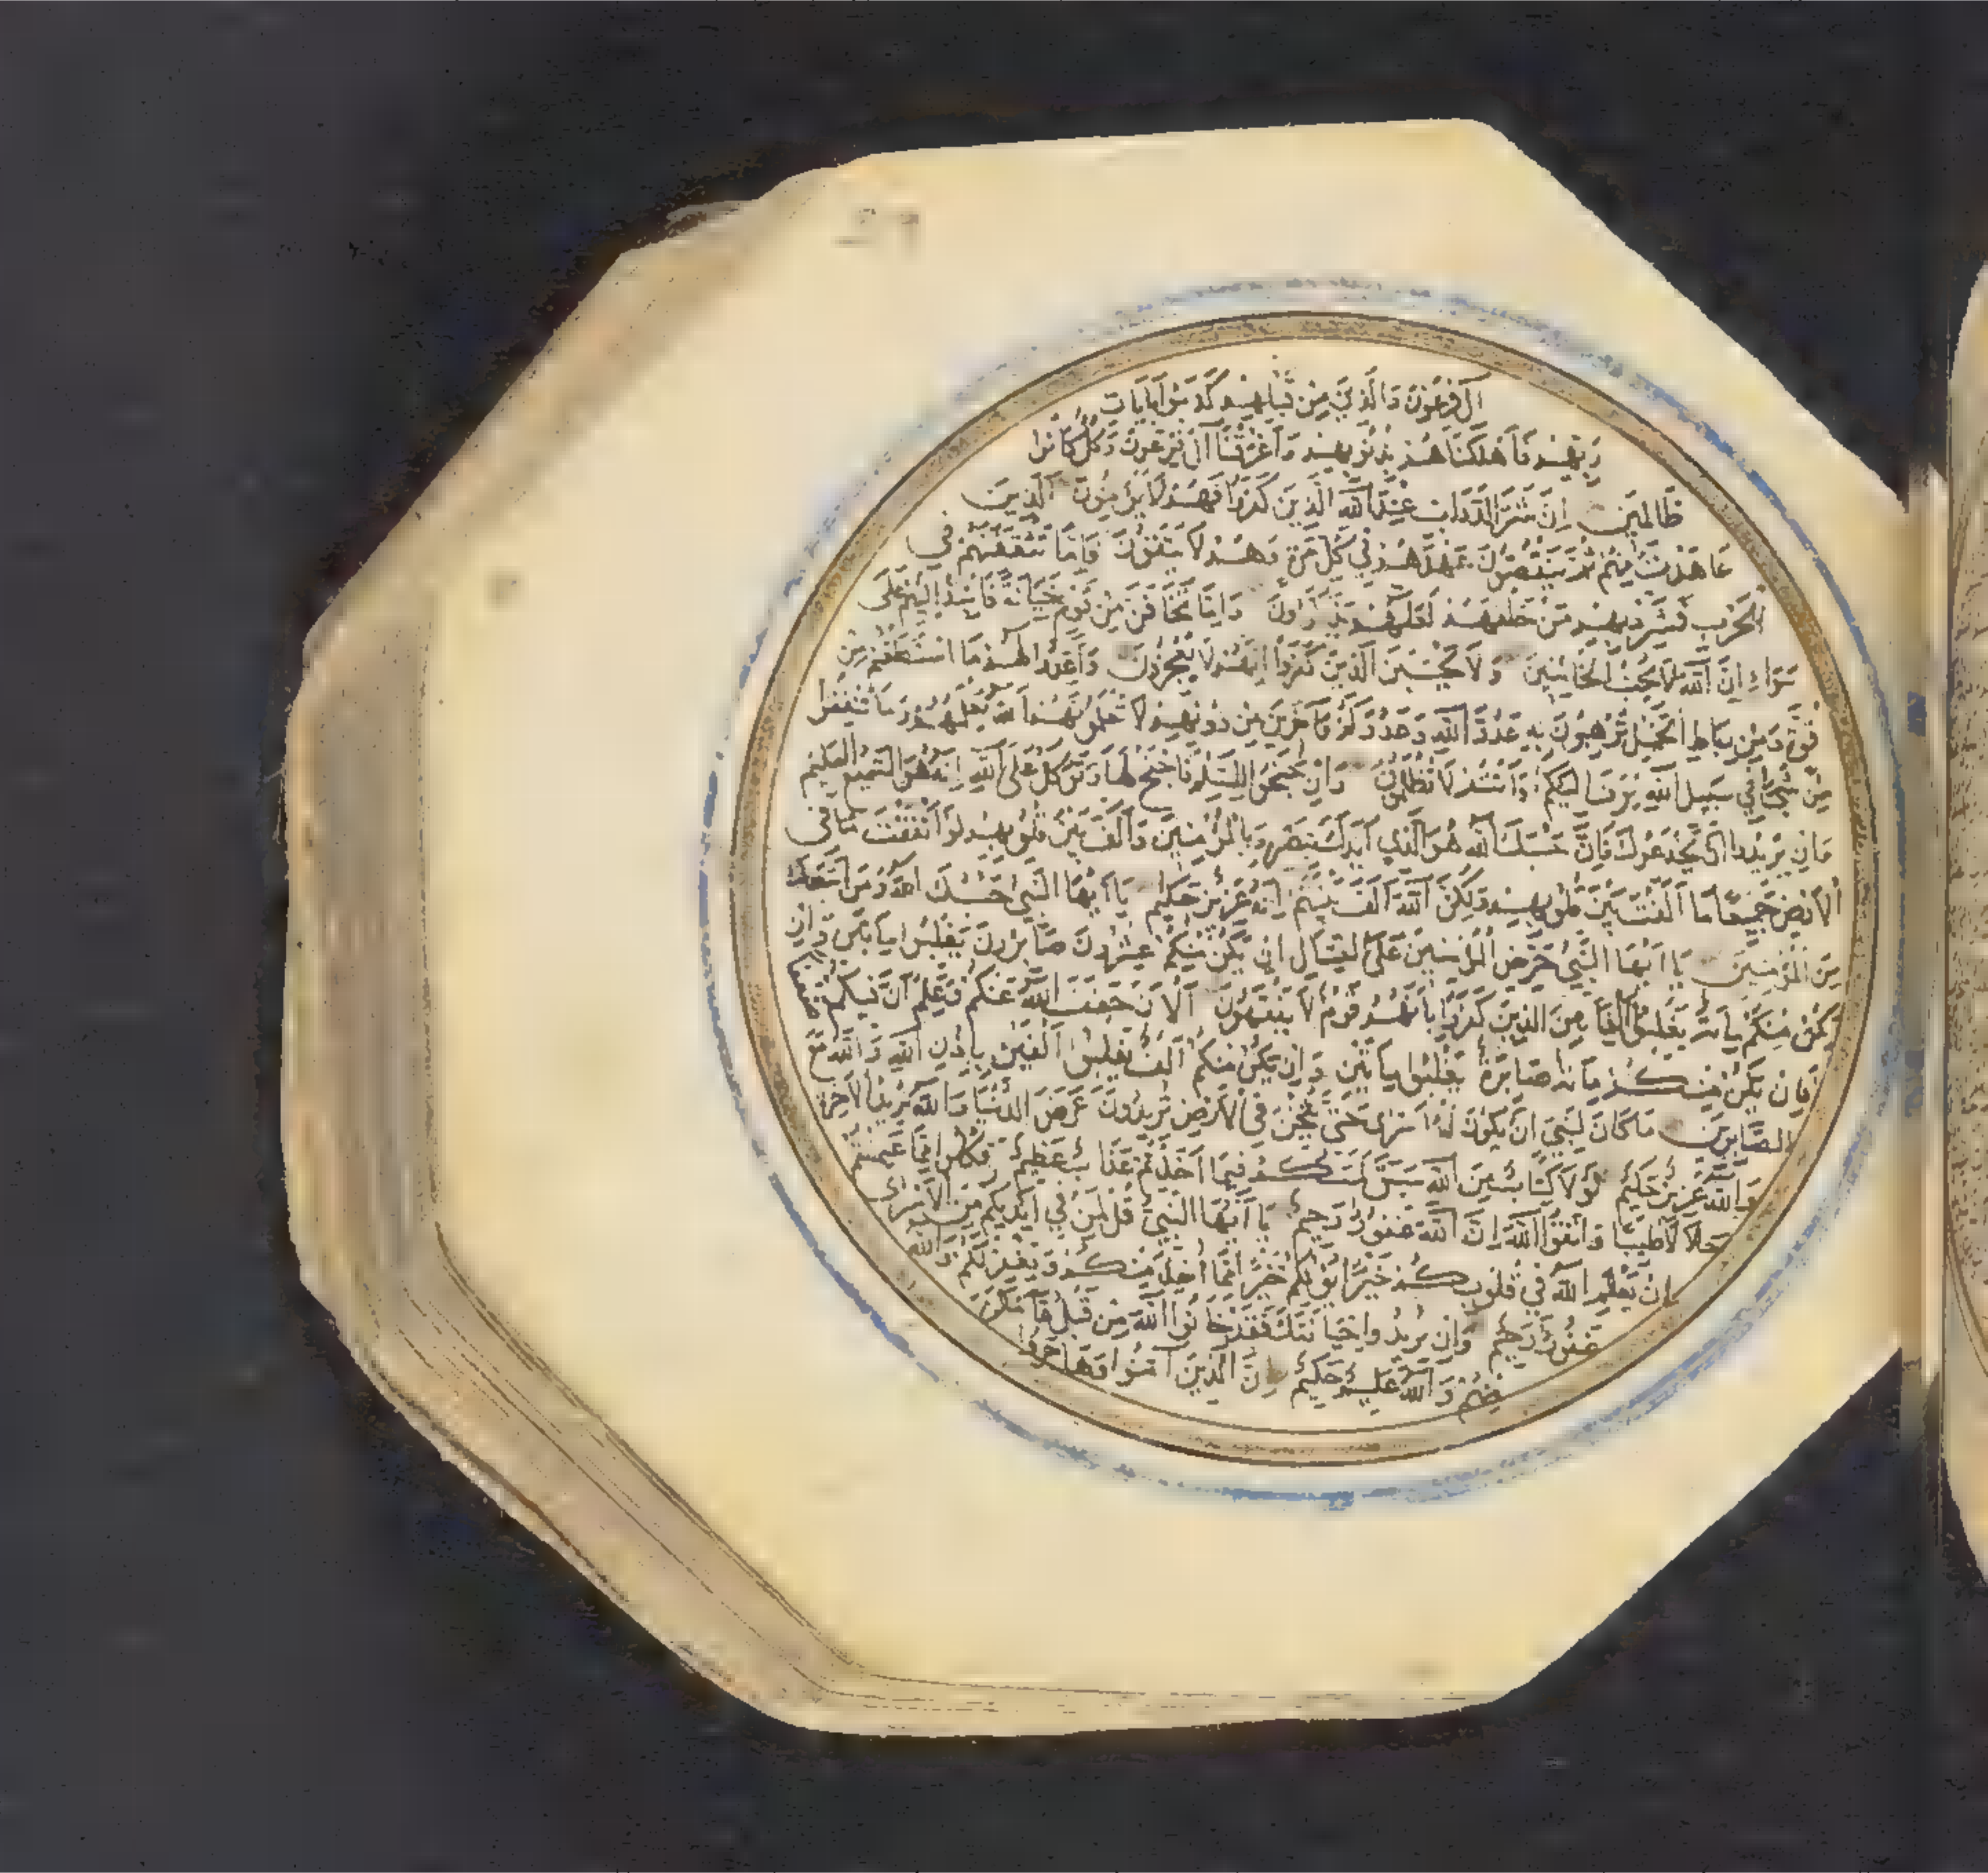 آل فرعون والذين من قبلهم كذبوا بايات
ربهم فاهلكناهم بذنوبهم واغرقنا آل فرعون وكل كانوا
ظالمين ان شر الدواب عند الله الذين كفروا فهم لا يؤمنون الذين
عاهدت منهم ثم ينقضون عهدهم في كل مرة وهم لا يتقون فاما تثقفنهم في
الحرب فشرد بهم من خلفهم لعلهم يذكرون واما تخافن من قوم خيانة فانبذ اليهم على
سواء ان الله لا يحب الخائنين ولا يحسبن الذين كفروا انهم لا يعجزون واعدوا لهم ما استطعتم من
قوة ومن رباط الخيل ترهبون به عدو الله وعدوكم وآخرين من دونهم لا تعلمونهم الله يعلمهم وما تنفقوا
من شئ في سبيل الله يوف اليكم وانتم لا تظلمون وان جنحوا للسلم فاجنح لها وتوكل على الله انه هو السميع العليم
وان يريدوا ان يخدعوك فان حسبك الله هو الذي ايدك بنصره وبالمؤمنين والف بين قلوبهم لو انفقت ما في
الارض جميعا ما الفت بين قلوبهم ولكن الله الف بينهم انه عزيز حكيم يا ايها النبي حسبك الله ومن اتبعك
من المؤمنين يا ايها النبي حرض المؤمنين على القتال ان يكن منكم عشرون صابرون يغلبوا مايتين وان
يكن منكم ماية يغلبوا الفا من الذين كفروا بانهم قوم لا يفقهون الآن خفف الله عنكم وعلم ان فيكم ضعفا
فان يكن منكم ماية صابرة يغلبوا مايتين وان يكن منكم الف يغلبوا الفين باذن الله والله مع
الصابرين ما كان لنبي ان يكون له اسرى حتى يثخن في الارض تريدون عرض الدنيا والله يريد الآخرة
والله عزيز حكيم لولا كتاب من الله سبق لمسكم فيما اخذتم عذاب عظيم فكلوا مما غنمتم
حلالا طيبا واتقوا الله ان الله غفور رحيم يا ايها النبي قل لمن في ايديكم من الاسرى
ان يعلم الله في قلوبكم خيرا يؤتكم خيرا مما اخذ منكم ويغفر لكم والله
غفور رحيم وان يريدوا خيانتك فقد خانوا الله من قبل فامكن
منهم والله عليم حكيم ان الذين آمنوا وهاجروا